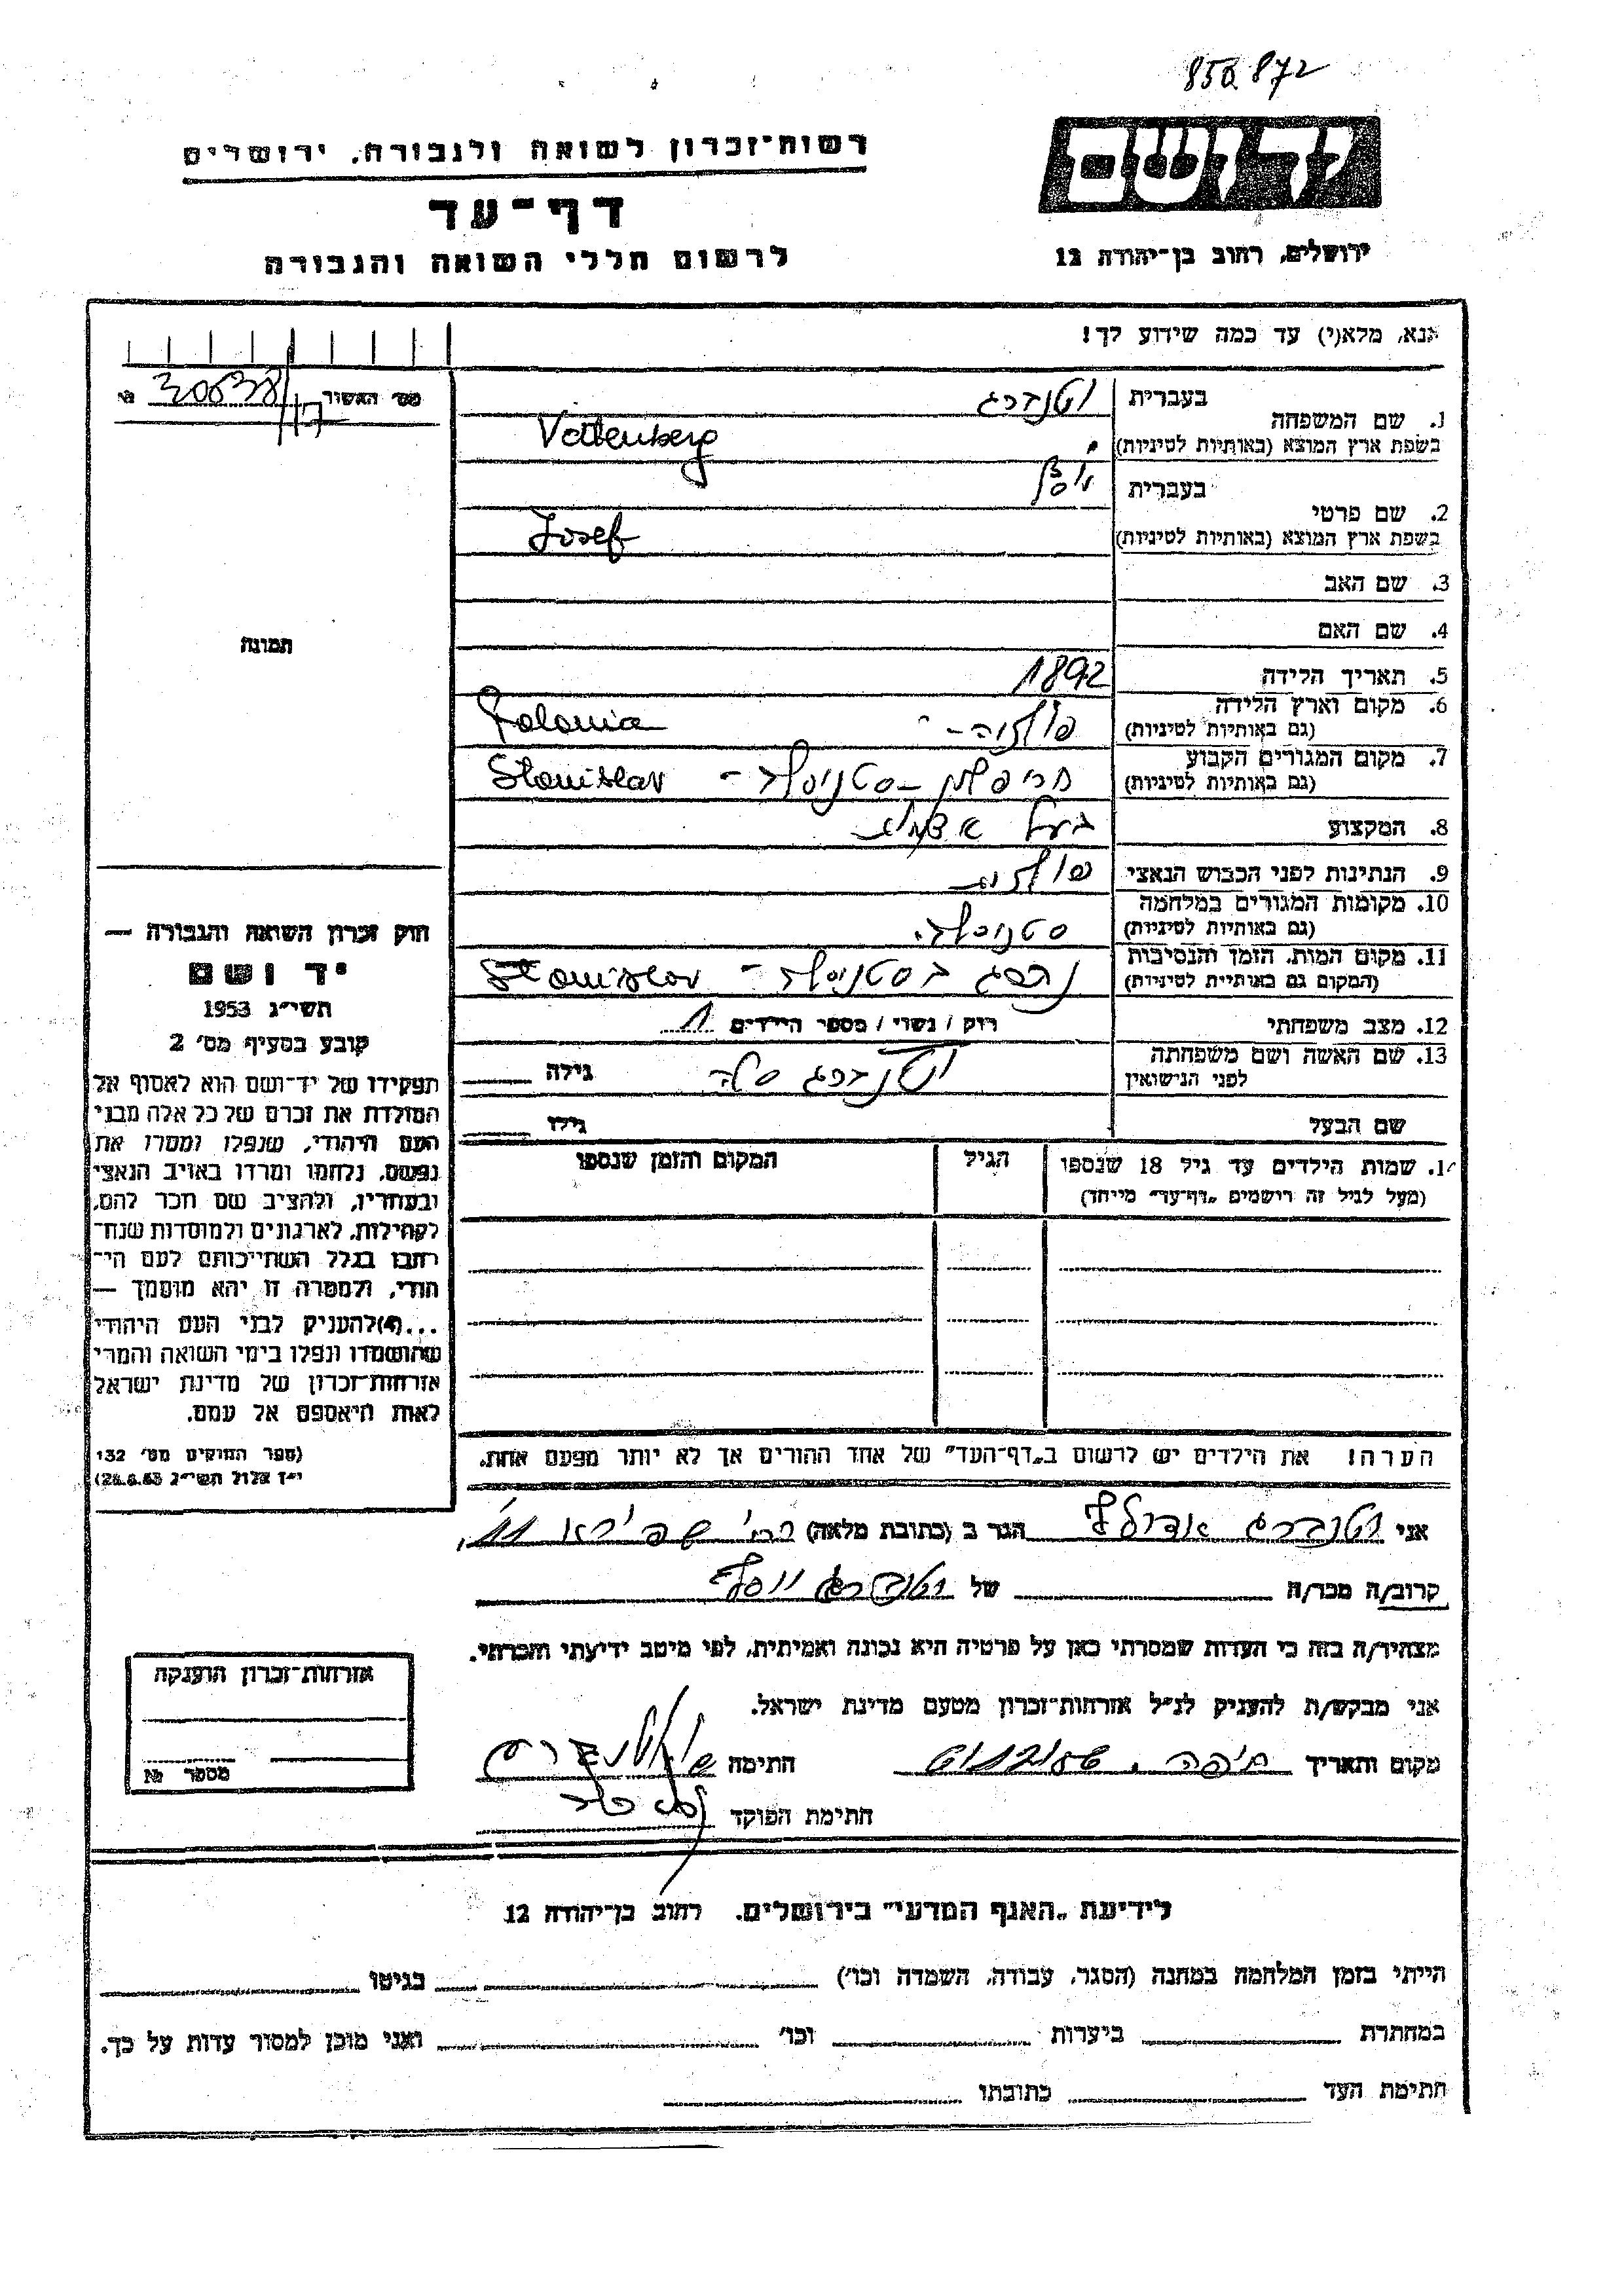 850872
רשות־זכרון לשואה ולגבורה, ירושלים
דף־עד
לרשום חללי השואה והגבורה
יד ושם
ירושלים, רחוב בן־יהודה 12
אנא, מלא(י) עד כמה שידוע לך!
מס׳ האשור 30638/17 №
תמונה
1. שם המשפחה
בעברית וטנברג
בשפת ארץ המוצא (באותיות לטיניות) Vattenberg
2. שם פרטי
בעברית יוסף
בשפת ארץ המוצא (באותיות לטיניות) Josef
3. שם האב
4. שם האם
5. תאריך הלידה 1892
6. מקום וארץ הלידה
(גם באותיות לטיניות) פולניה - Polonia
7. מקום המגורים הקבוע
(גם באותיות לטיניות) סטניסלב - Stanislav
8. המקצוע בעל
9. הנתינות לפני הכבוש הנאצי פולנית
10. מקומות המגורים במלחמה
(גם באותיות לטיניות) סטניסלב.
11. מקום המות, הזמן והנסיבות
(המקום גם באותיות לטיניות) נהרג בסטניסלב - Stanislav
12. מצב משפחתי רווק / נשוי / מספר הילדים 1
13. שם האשה ושם משפחתה
לפני הנישואין וטנברג גילה
שם הבעל גילו
14. שמות הילדים עד גיל 18 שנספו
(מעל לגיל זה רושמים „דף־עד” מייחד)
הגיל
המקום והזמן שנספו
חוק זכרון השואה והגבורה —
יד ושם
תשי״ג 1953
קובע בסעיף מס׳ 2
תפקידו של יד־ושם הוא לאסוף אל
המולדת את זכרם של כל אלה מבני
העם היהודי, שנפלו ומסרו את
נפשם, נלחמו ומרדו באויב הנאצי
ובעוזריו, ולהציב שם וזכר להם,
לקהילות, לארגונים ולמוסדות שנח־
רבו בגלל השתייכותם לעם הי־
הודי, ולמטרה זו יהא מוסמך —
...(4)להעניק לבני העם היהודי
שהושמדו ונפלו בימי השואה והמרי
אזרחות־זכרון של מדינת ישראל
לאות היאספם אל עמם.
(ספר החוקים מס׳ 132
י״ז אלול תשי״ג 28.8.53)
הערה! את הילדים יש לרשום ב„דף־העד” של אחד ההורים אך לא יותר מפעם אחת.
אני וטנברג אדולף הגר ב (כתובת מלאה) שפירא 11,
קרוב/ה מכר/ה של וטנברג יוסף
מצהיר/ה בזה כי העדות שמסרתי כאן על פרטיה היא נכונה ואמיתית, לפי מיטב ידיעתי והכרתי.
אני מבקש/ת להעניק לנ״ל אזרחות־זכרון מטעם מדינת ישראל.
מקום ותאריך חיפה, חתימה
חתימת הפוקד
אזרחות־זכרון הוענקה
מספר №
לידיעת „האגף המדעי” בירושלים. רחוב בן־יהודה 12
הייתי בזמן המלחמה במחנה (הסגר, עבודה, השמדה וכו׳) בגיטו
במחתרת ביערות וכו׳ ואני מוכן למסור עדות על כך.
חתימת העד כתובתו